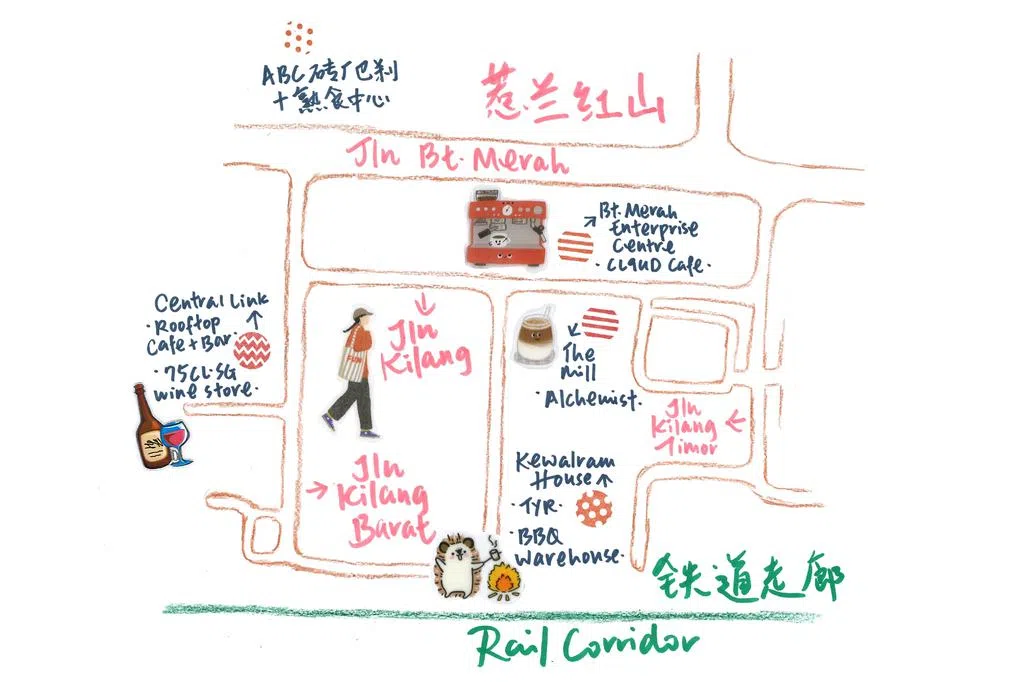 ABC砖厂巴刹
+熟食中心
惹兰红山
Jln Bt. Merah
Bt. Merah
Enterprise
Centre
· CLOUD Cafe ·
Central Link
· Rooftop
Cafe + Bar ·
· 75CL·SG
wine store ·
Jln
Kilang
The
Mill
· Alchemist.
Jln
Kilang
Timor
Jln
Kilang
Barat
Kewalram
House
· TYR ·
· BBQ
warehouse ·
铁道走廊
Rail Corridor